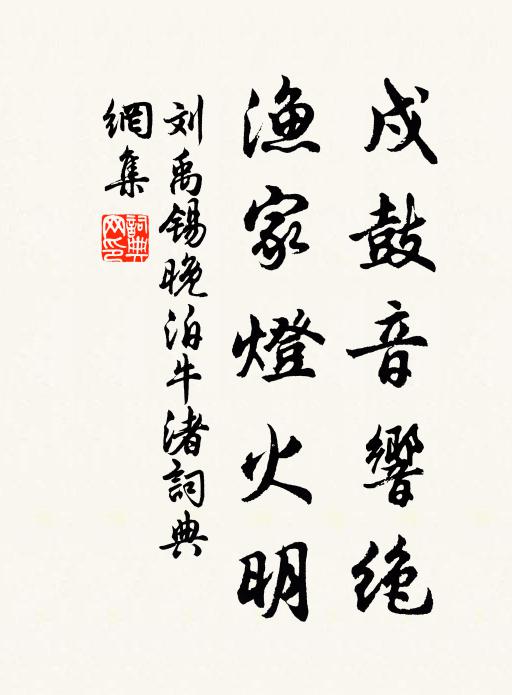 戍鼓音響绝
渔家燈火明
刘禹锡晚泊牛渚詞典
網集
詞典
网印